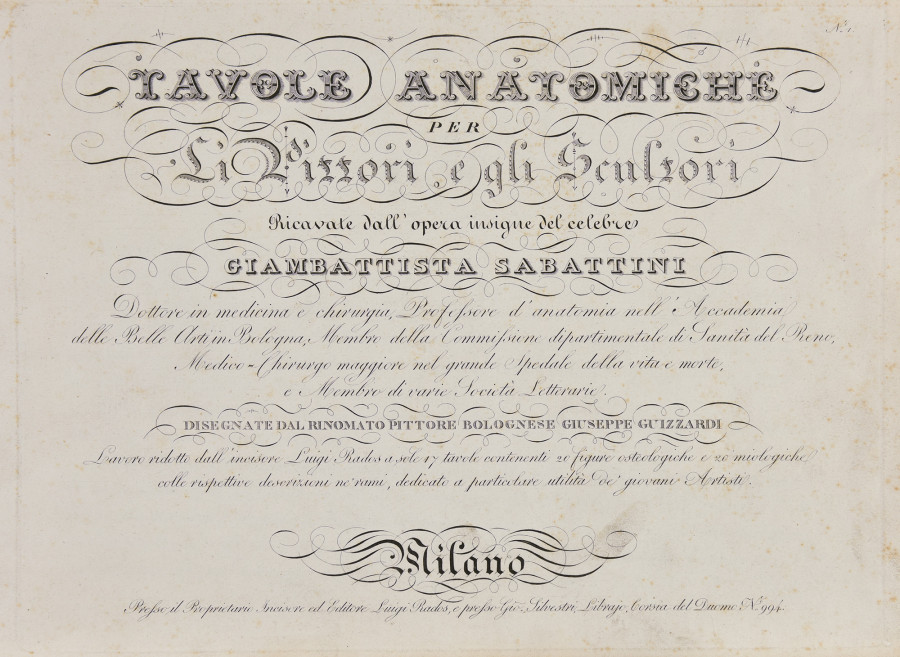 N.º 1.
TAVOLE ANATOMICHE
PER
Li Pittori, e gli Scultori
Ricavate dall' opera insigne del celebre
GIAMBATTISTA SABATTINI
Dottore in medicina e chirurgia, Professore d' anatomia nell' Accademia
delle Belle Arti in Bologna, Membro della Commissione dipartimentale di Sanità del Reno,
Medico-Chirurgo maggiore nel grande Spedale della vita e morte,
e Membro di varie Società Letterarie.
DISEGNATE DAL RINOMATO PITTORE BOLOGNESE GIUSEPPE GUIZZARDI
Lavoro ridotto dall' incisore Luigi Rados a sole 17 tavole contenenti 20 figure osteologiche e 20 miologiche
colle rispettive descrizioni ne' rami, dedicato a particolare utilità de' giovani Artisti.
Milano
Presso il Proprietario Incisore ed Editore Luigi Rados, e presso Gio. Silvestri Librajo, Corsia del Duomo N.º 994.